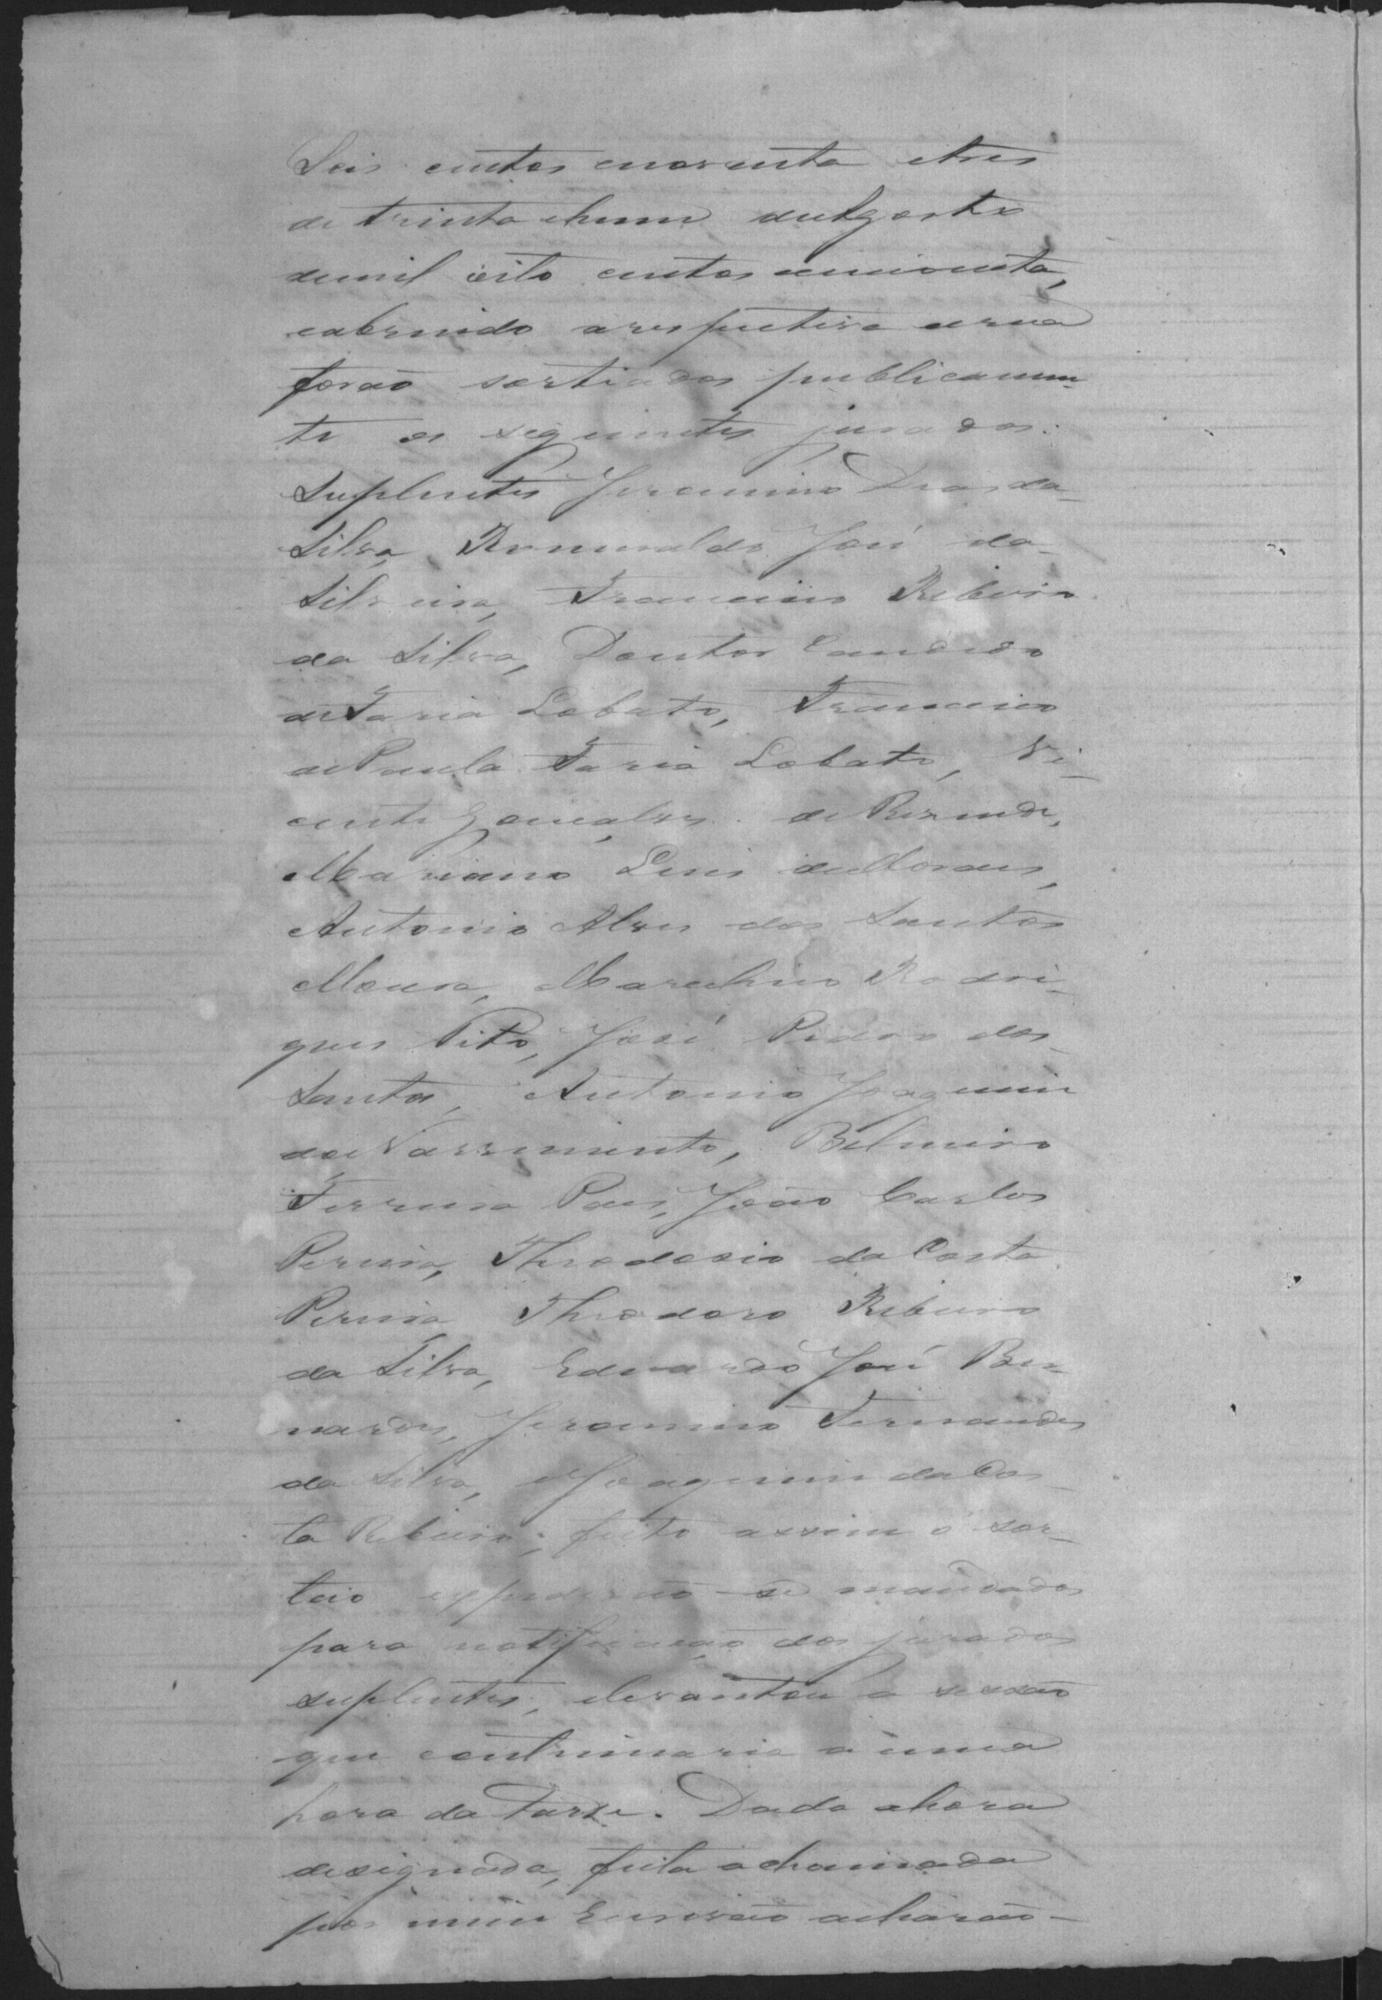 Seis centos enoventa etres
de trinta ehum de Agosto
demil oito centos cincoenta,
eabrindo a respectiva urna
forão sortiados publicamen-
te os seguintes jurados:
Suplentes Jeronimo Dias da
Silva, Romualdo José da
Silveira, Francisco Ribeiro
da Silva, Doutor Candido
de Faria Lobato, Francisco
de Paula Faria Lobato, Vi-
cente Gonçalves de Rezende,
Mariano Luis de Moraes,
Antonio Alves dos Santos
Moura, Marcelino Rodri-
gues Pito, José Pedro dos
Santos, Antonio Joaquim
do Nascimento, Belmiro
Ferreira Paes, João Carlos
Pereira, Theodosio da Costa
Pereira Theodoro Ribeiro
da Silva, Eduardo José Ber-
nardes, Jeronimo Fernandes
da Silva, Joaquim da Cos-
ta Ribeiro; feito assim o sor-
teio expedirão-se mandados
para notificação dos jurados
suplentes, elevantou a sessão
que continuaria a uma
hora da tarde. Dada ahora
designada, feita achamada
por mim Escrivão acharão-